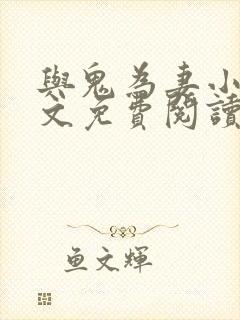 與鬼為妻小
文免費閱讀
鱼文輝